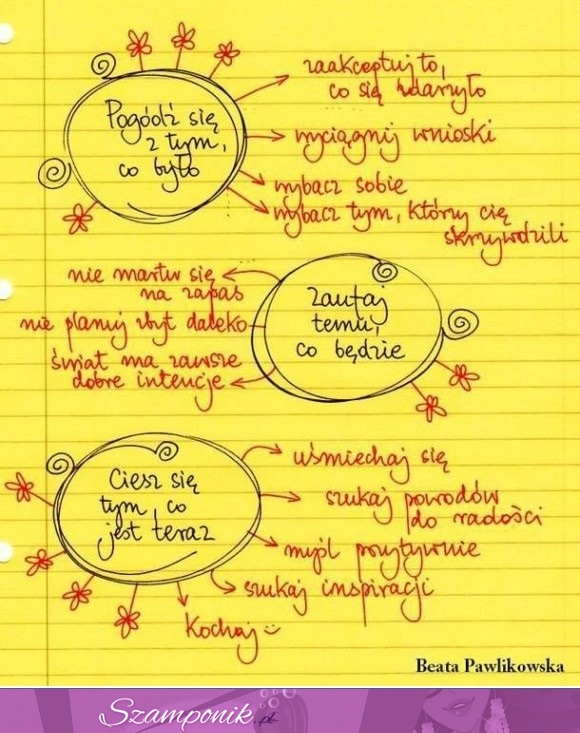 Pogódź się
z tym,
co było
zaakceptuj to,
co się wdarzyło
wyciągnij wnioski
wybacz sobie
wybacz tym, którzy cię
skrzywdzili
Zaufaj
temu,
co będzie
nie martw się
na zapas
nie planuj zbyt daleko
świat ma zawsze
dobre intencje
Ciesz się
tym, co
jest teraz
uśmiechaj się
szukaj powodów
do radości
myśl pozytywnie
szukaj inspiracji
Kochaj
Beata Pawlikowska
Szamponik.pl